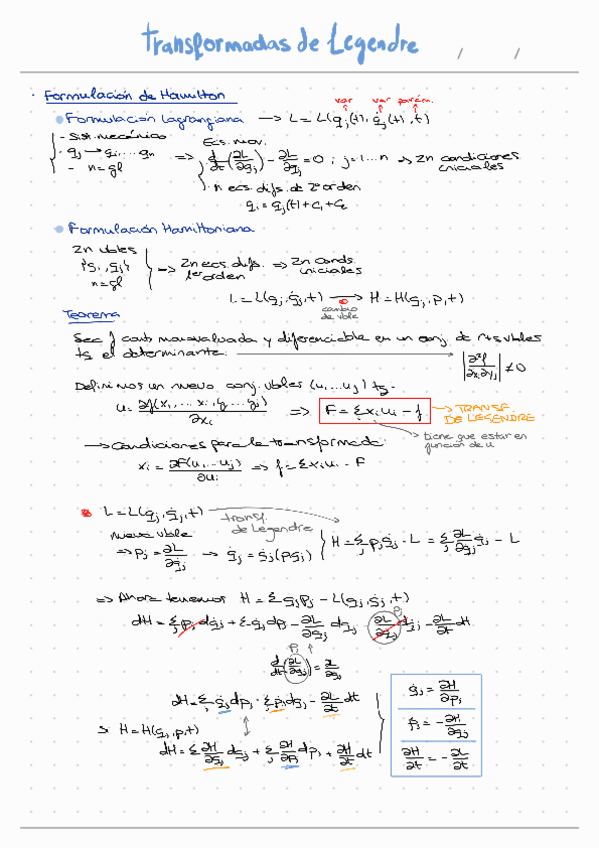 Transformadas de Legendre / /
· Formulación de Hamilton
Formulación Lagrangiana → L = L(q_j(t), q̇_j(t), t)
var var parám.
- Sist. mecánico
- q_j → q_1, ... q_n
- n = gl
Ecs. mov.
⇒ d/dt(∂L/∂q̇_j) - ∂L/∂q_j = 0 ; j = 1...n ⇒ 2n condiciones iniciales
· n ecs. difs. de 2º orden
q_i = q_j(t) + C_1 + C_2
Formulación Hamiltoniana
2n vbles
{q_j, q̇_j}
n = gl
⇒ 2n ecs. difs. 1er orden ⇒ 2n conds. iniciales
L = L(q_j, q̇_j, t) → H = H(q_j, p, t)
cambio de vble
Teorema
Sea f cont. monovaluada y diferenciable en un conj. de r+s vbles
tq el determinante: |∂²f/∂x_i∂y_j| ≠ 0
Definimos un nuevo conj. vbles (u_1 ... u_j) tq.
u = ∂f(x_1, ... x_i, y_1 ... y_j)/∂x_i ⇒ F = Σ x_i u_i - f → TRANSF. DE LEGENDRE
tiene que estar en función de u
→ Condiciones para la transformada
x_i = ∂F(u_1 ... u_j)/∂u_i ⇒ f = Σ x_i u_i - F
L = L(q_j, q̇_j, t) transf. de Legendre
nueva vble
⇒ p_j = ∂L/∂q̇_j → q̇_j = q̇_j(p q_j)
H = Σ_j p_j q̇_j - L = Σ_j ∂L/∂q̇_j q̇_j - L
⇒ Ahora tenemos H = Σ q̇_j p_j - L(q_j, q̇_j, t)
dH = Σ_j p_j dq̇_j + Σ q̇_j dp_j - ∂L/∂q_j dq_j - ∂L/∂q̇_j dq̇_j - ∂L/∂t dt
p_j
p_j
d/dt(∂L/∂q̇_j) = ∂L/∂q_j
dH = Σ_j q̇_j dp_j - Σ_j ṗ_j dq_j - ∂L/∂t dt
Si H = H(q_j, p, t)
dH = Σ ∂H/∂q_j dq_j + Σ_j ∂H/∂p_j dp_j + ∂H/∂t dt
q̇_j = ∂H/∂p_j
ṗ_j = -∂H/∂q_j
∂H/∂t = -∂L/∂t